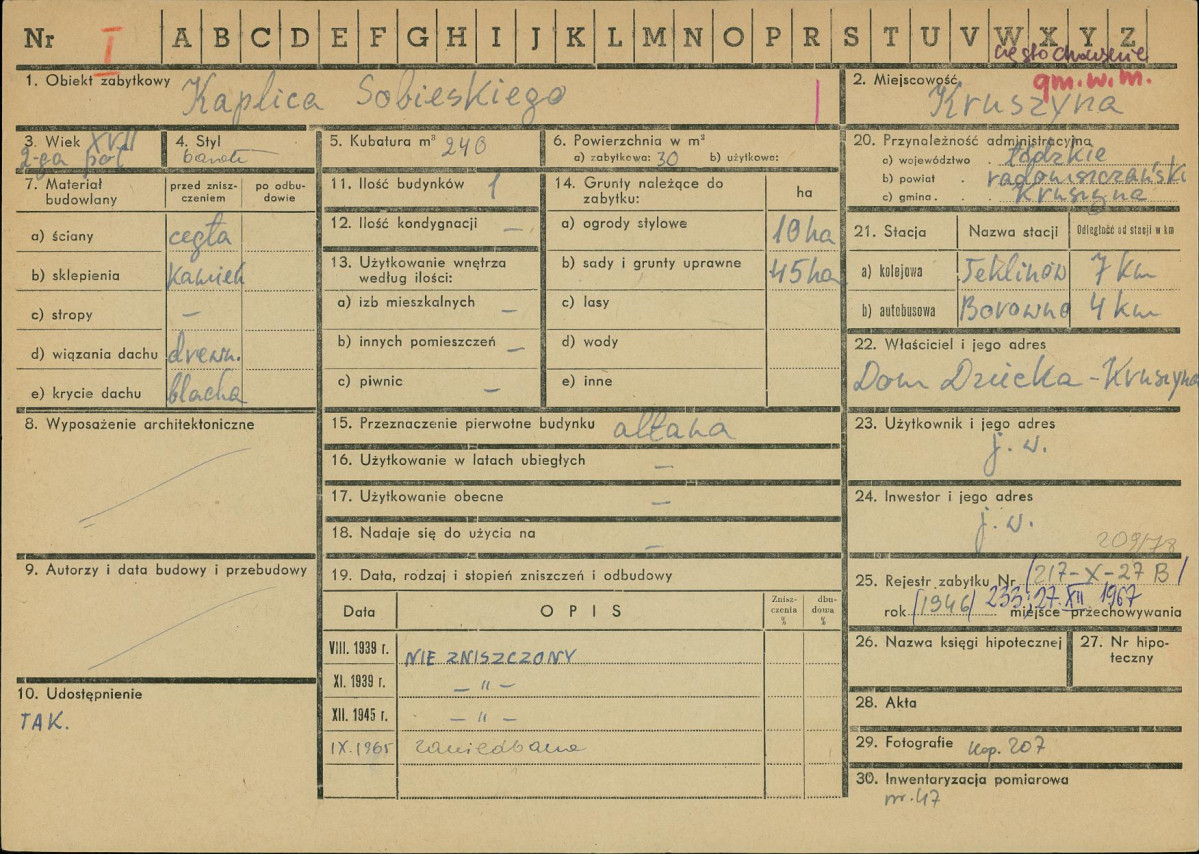 Nr I A B C D E F G H I J K L M N O P R S T U V W X Y Z
częstochowskie
gm. w. m.
1. Obiekt zabytkowy Kaplica Sobieskiego
2. Miejscowość Kruszyna
3. Wiek XVII
2-ga poł
4. Styl barok
5. Kubatura m³ 240
6. Powierzchnia w m²
a) zabytkowa: 30 b) użytkowa:
20. Przynależność administracyjna
a) województwo łódzkie
b) powiat radomszczański
c) gmina Kruszyna
7. Materiał budowlany
przed zniszczeniem
po odbudowie
a) ściany cegła
b) sklepienia kamień
c) stropy –
d) wiązania dachu drewn.
e) krycie dachu blacha
8. Wyposażenie architektoniczne
9. Autorzy i data budowy i przebudowy
10. Udostępnienie
TAK.
11. Ilość budynków 1
12. Ilość kondygnacji –
13. Użytkowanie wnętrza
według ilości:
a) izb mieszkalnych –
b) innych pomieszczeń –
c) piwnic –
14. Grunty należące do
zabytku:
ha
a) ogrody stylowe 10 ha
b) sady i grunty uprawne 45 ha
c) lasy
d) wody
e) inne
15. Przeznaczenie pierwotne budynku altana
16. Użytkowanie w latach ubiegłych –
17. Użytkowanie obecne –
18. Nadaje się do użycia na –
19. Data, rodzaj i stopień zniszczeń i odbudowy
Data OPIS Zniszczenia % dbudowa %
VIII. 1939 r. NIE ZNISZCZONY
XI. 1939 r. – " –
XII. 1945 r. – " –
IX. 1965 zaniedbana
21. Stacja Nazwa stacji Odległość od stacji w km
a) kolejowa Teklinów 7 km
b) autobusowa Borowno 4 km
22. Właściciel i jego adres
Dom Dziecka - Kruszyna
23. Użytkownik i jego adres
j. w.
24. Inwestor i jego adres
j. w.
209/78
25. Rejestr zabytku Nr /217-X-27 B/
rok /1946/ 233; 27.XII 1967 miejsce przechowywania
26. Nazwa księgi hipotecznej
27. Nr hipoteczny
28. Akta
29. Fotografie Kop. 207
30. Inwentaryzacja pomiarowa
nr. 47